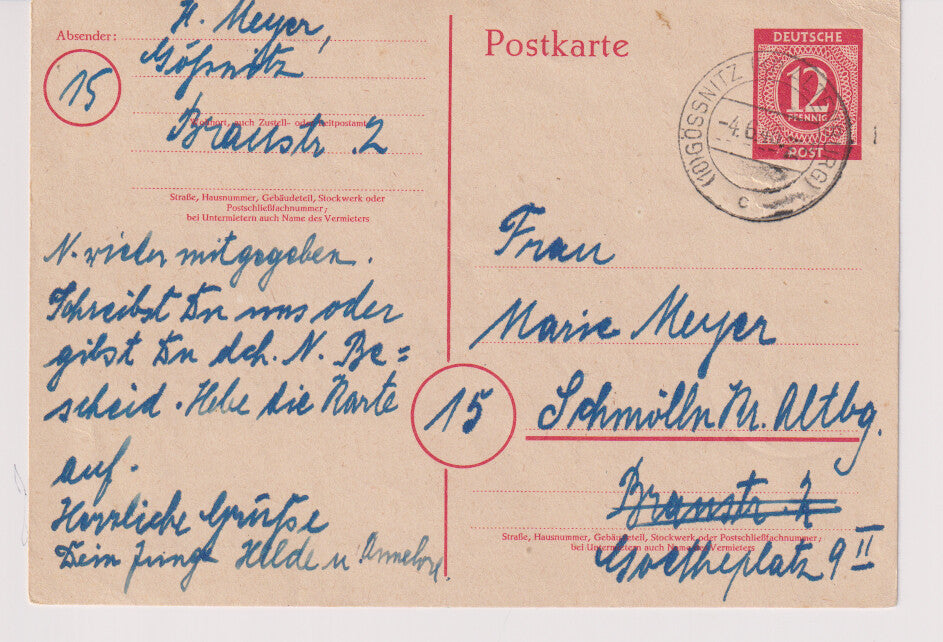 Absender:
H. Meyer,
Gößnitz
15
Wohnort, auch Zustell- oder Leitpostamt
Braustr. 2
Straße, Hausnummer, Gebäudeteil, Stockwerk oder
Postschließfachnummer;
bei Untermietern auch Name des Vermieters
N. wieder mitgegeben.
Schreibst Du uns oder
gibst Du dch. N. Be=
scheid. Hebe die Karte
auf.
Herzliche Grüße
Dein Junge Hilde u
Postkarte
DEUTSCHE
12
PFENNIG
POST
(10) GÖSSNITZ
-4.6.
c
Frau
Marie Meyer
15
Schmölln Kr. Altbg.
Braustr. 2
Straße, Hausnummer, Gebäudeteil, Stockwerk oder Postschließfachnummer;
bei Untermietern auch Name des Vermieters
Goetheplatz 9 II